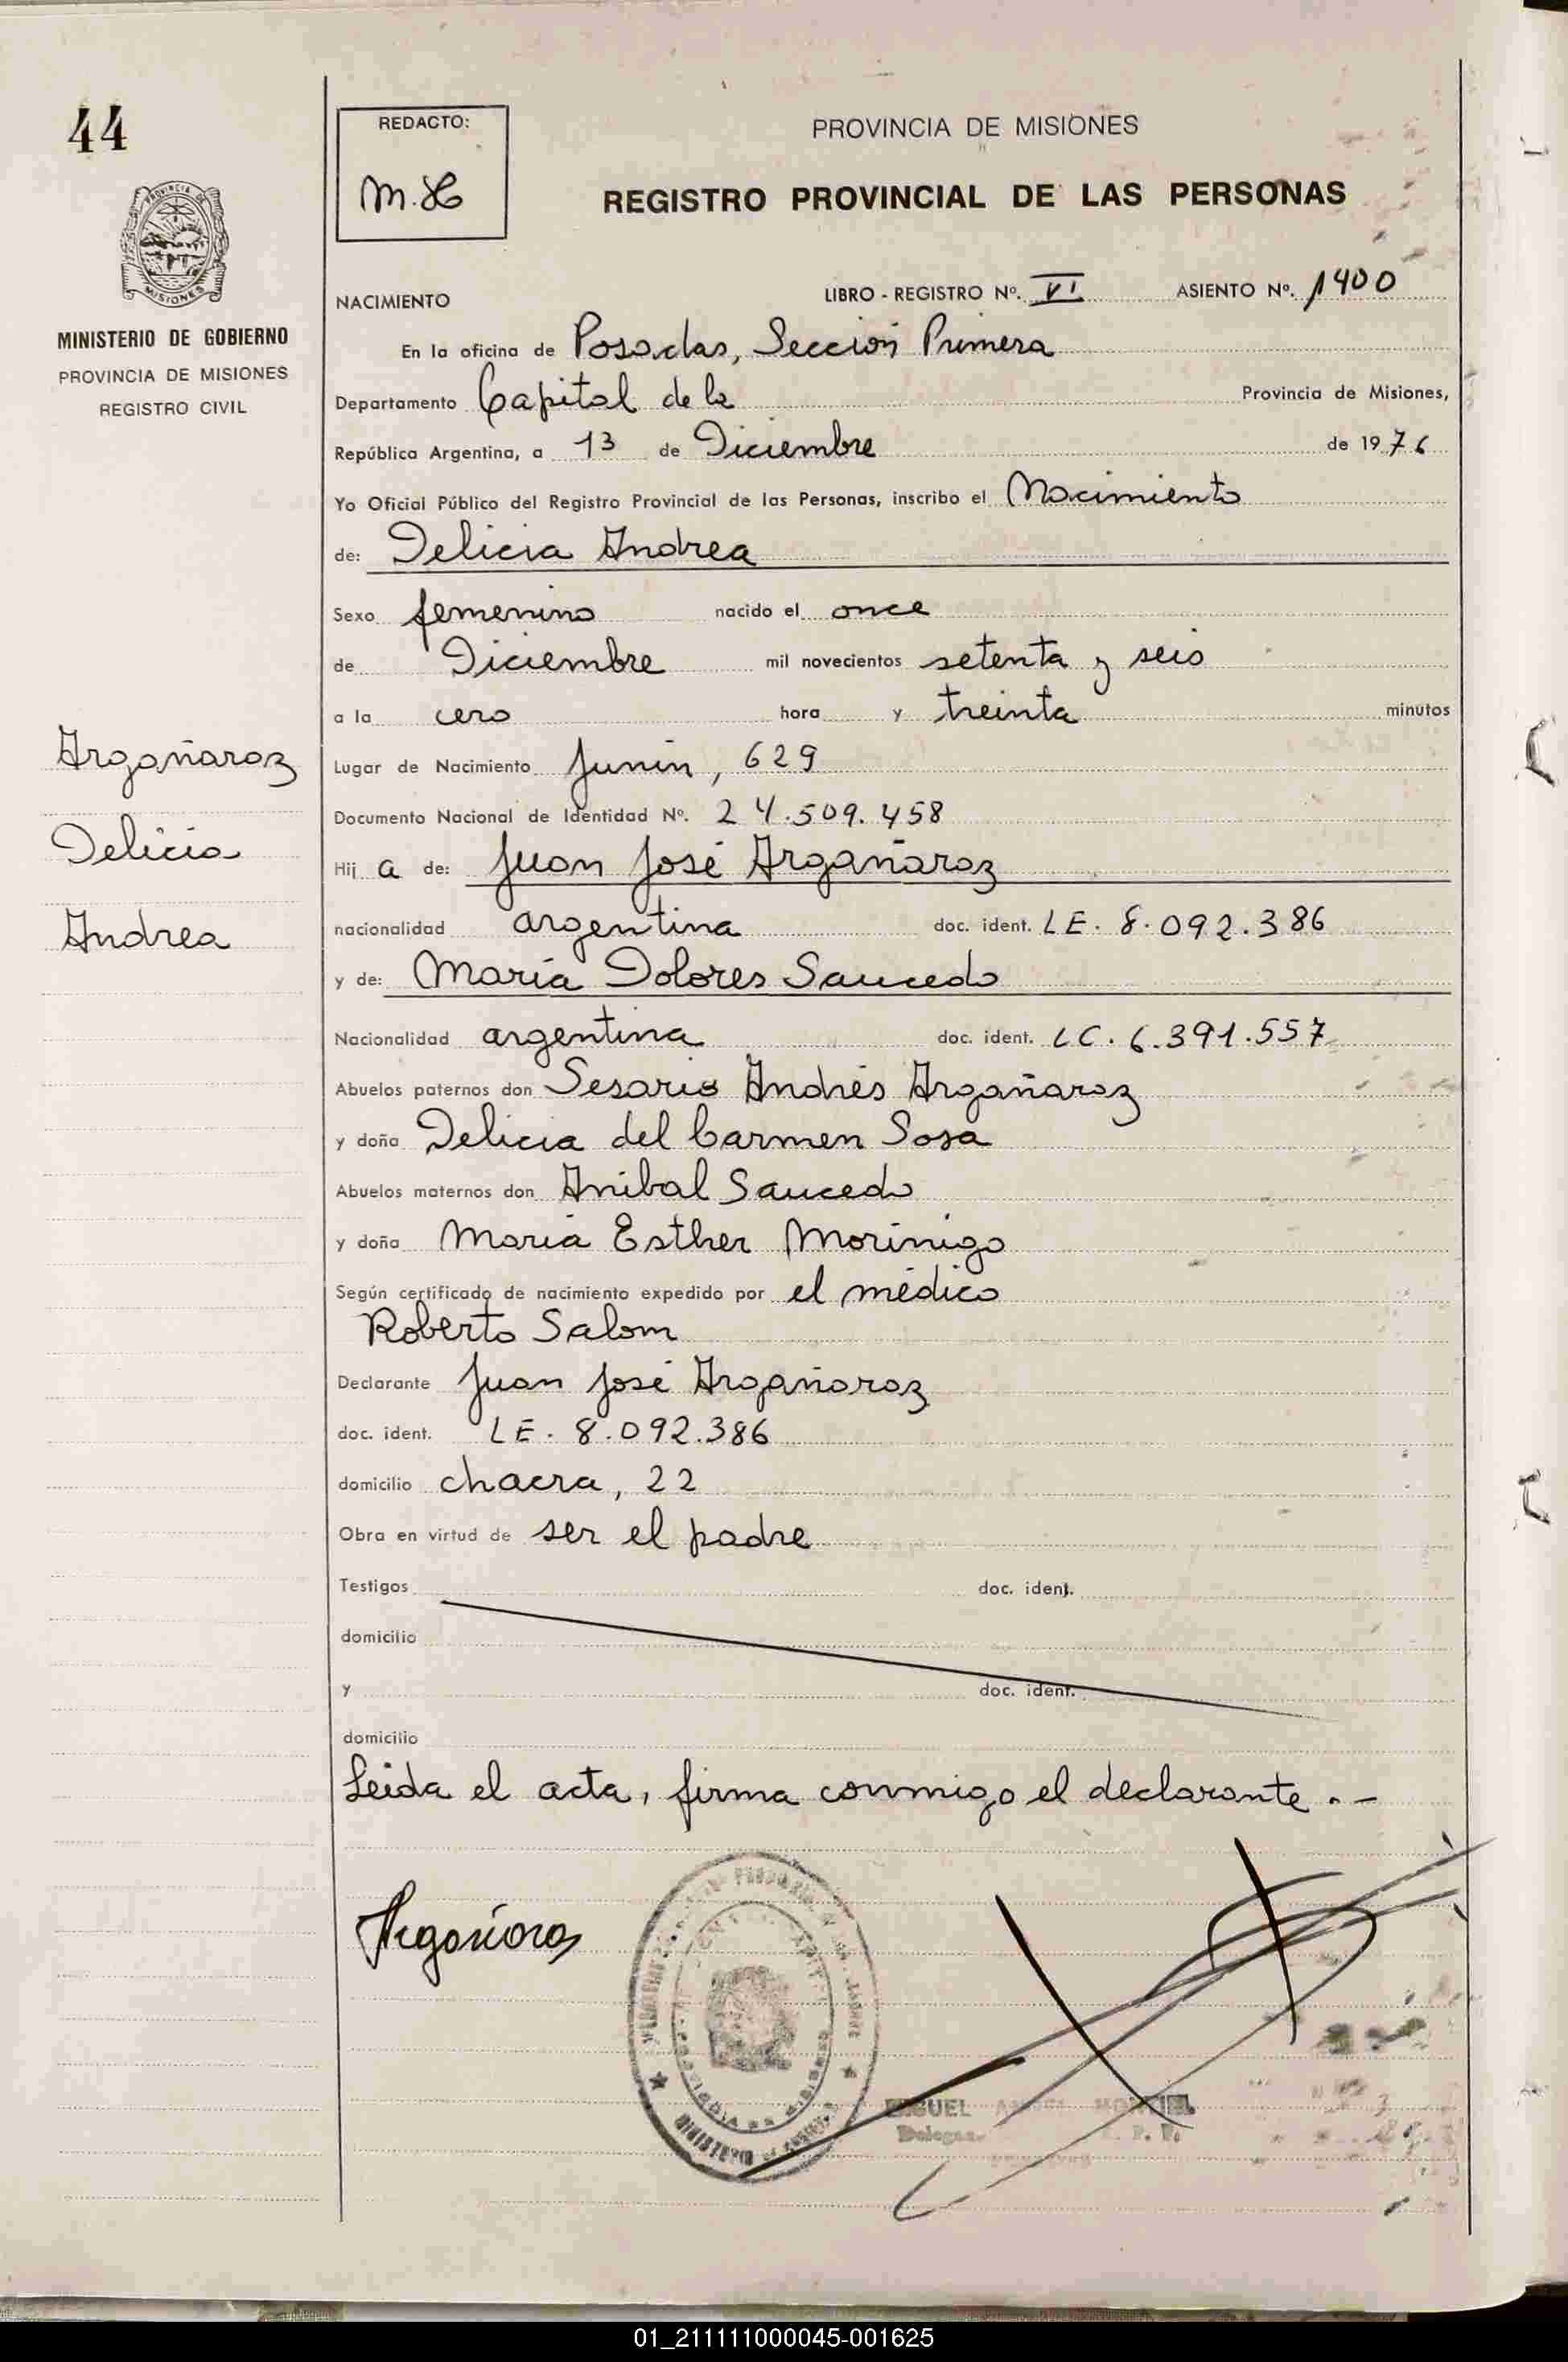 44
REDACTO:
M.H
PROVINCIA DE MISIONES
REGISTRO PROVINCIAL DE LAS PERSONAS
MISIONES
MINISTERIO DE GOBIERNO
PROVINCIA DE MISIONES
REGISTRO CIVIL
NACIMIENTO LIBRO - REGISTRO Nº. VI ASIENTO Nº. 1400
En la oficina de Posadas, Sección Primera
Departamento Capital de la Provincia de Misiones,
República Argentina, a 13 de Diciembre de 1976
Yo Oficial Público del Registro Provincial de las Personas, inscribo el Nacimiento
de: Delicia Andrea
Sexo femenino nacido el once
de Diciembre mil novecientos setenta y seis
a la cero hora y treinta minutos
Argañaraz
Delicia
Andrea
Lugar de Nacimiento Junín, 629
Documento Nacional de Identidad Nº. 24.509.458
Hij a de: Juan José Argañaraz
nacionalidad argentina doc. ident. LE. 8.092.386
y de: María Dolores Saucedo
Nacionalidad argentina doc. ident. LC. 6.391.557
Abuelos paternos don Sesario Andrés Argañaraz
y doña Delicia del Carmen Sosa
Abuelos maternos don Anibal Saucedo
y doña María Esther Morínigo
Según certificado de nacimiento expedido por el médico
Roberto Salom
Declarante Juan José Argañaraz
doc. ident. LE. 8.092.386
domicilio chacra, 22
Obra en virtud de ser el padre
Testigos doc. ident.
domicilio
y doc. ident.
domicilio
Leida el acta, firma conmigo el declarante.-
Argañaraz
MIGUEL ANGEL
01_211111000045-001625